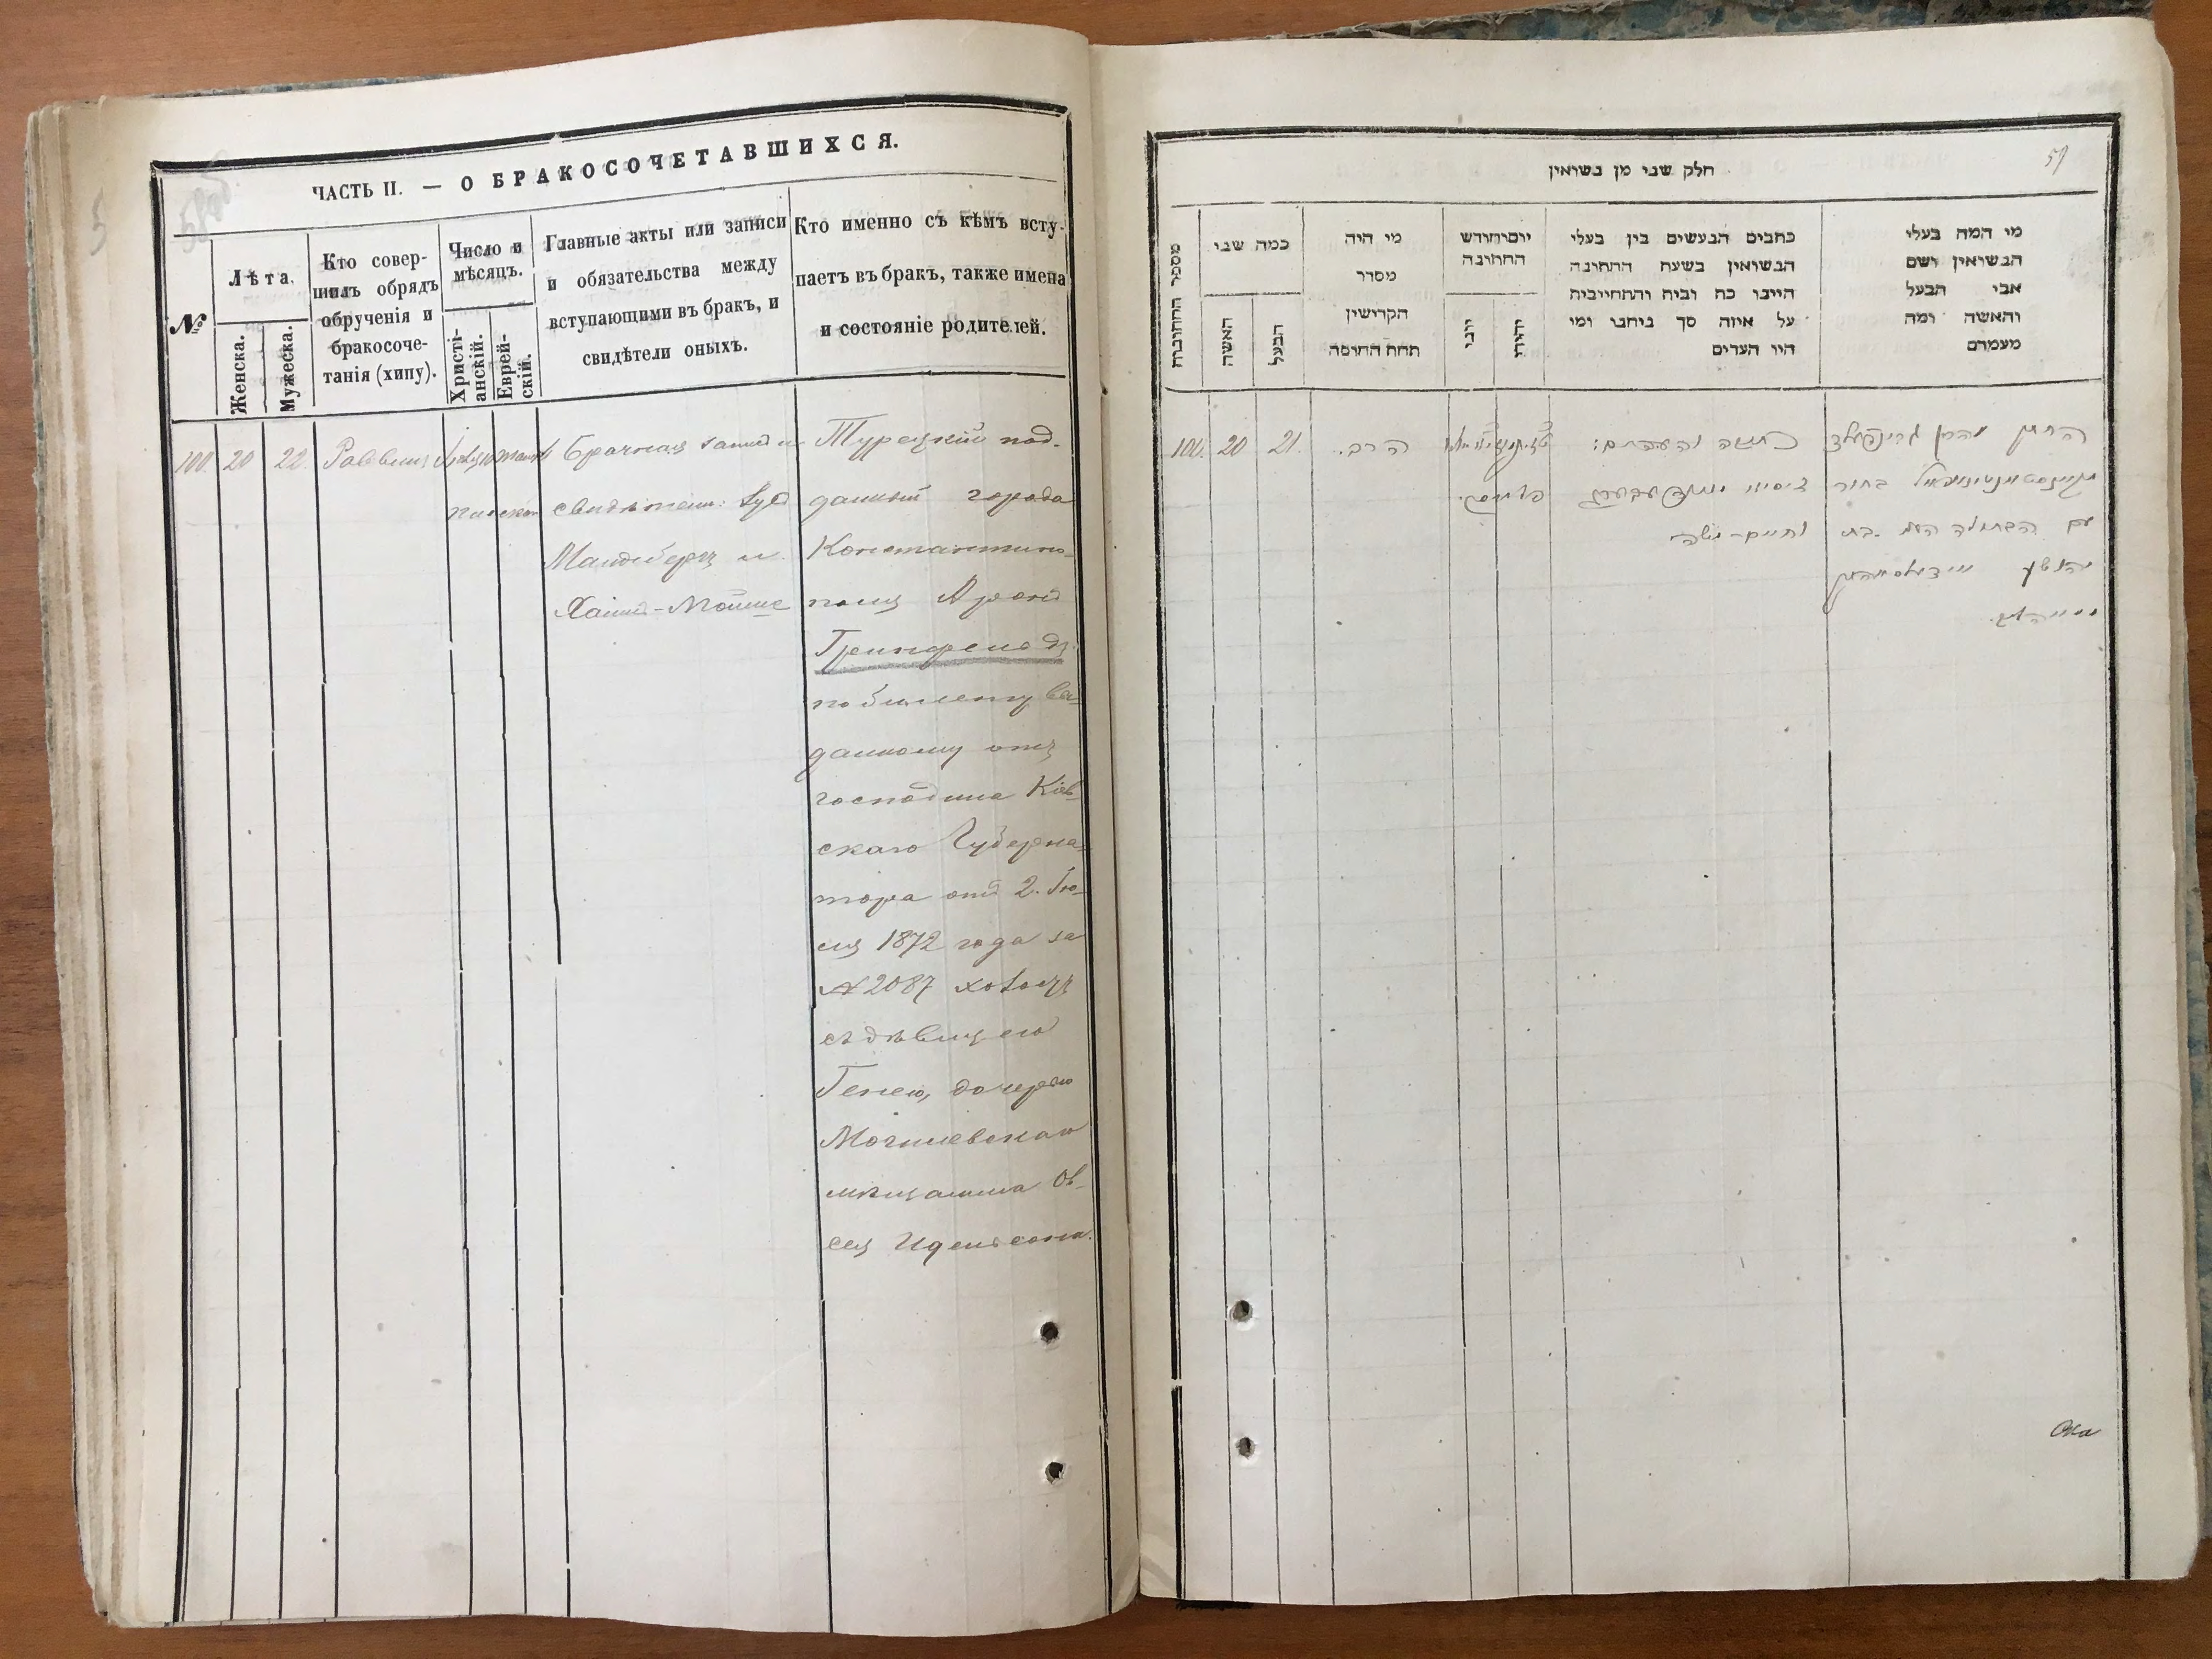 ЧАСТЬ II. — О БРАКОСОЧЕТАВШИХСЯ.
№
Лѣта.
Женска.
Мужеска.
Кто совер-
шилъ обрядъ
обрученія и
бракосоче-
танія (хипу).
Число и
мѣсяцъ.
Христі-
анскій.
Еврей-
скій.
Главные акты или записи
и обязательства между
вступающими въ бракъ, и
свидѣтели оныхъ.
Кто именно съ кѣмъ всту-
паетъ въ бракъ, также имена
и состояніе родителей.
100. 20 22. Раввинъ
Брачная запись и
свидѣтели:
Мандбергъ и
Хаимъ-Мойше
Турецкій под-
данный города
Константино-
поля Аронъ
Гринфельдъ
по билету вы-
данному отъ
господина Кіев-
скаго Губерна-
тора отъ 2. Ію-
ля 1872 года за
№ 2087 холостъ
съ дѣвицею
Генею, дочерью
Могилевскаго
мѣщанина Ов-
сея Идельсона.
חלק שני מן נשואין
59
מספר החתונה
כמה שני
האשה
הבעל
מי היה
מסדר
הקדושין
תחת החופה
יום וחודש
החתונה
יוני
יהודי
כתבים הנעשים בין בעלי
הנשואין בשעת החתונה
היינו כת וביה והתחייבות
על איזה סך ניתנו ומי
היו העדים
מי המה בעלי
הנשואין ושם
אבי הבעל
והאשה ומה
מעמדם
100. 20 21. הרב.
כתובה והעדים:
וחיים-משה
החתן אהרן גרינפעלד
בחור
עם הבתולה בת
יהושע
Ока